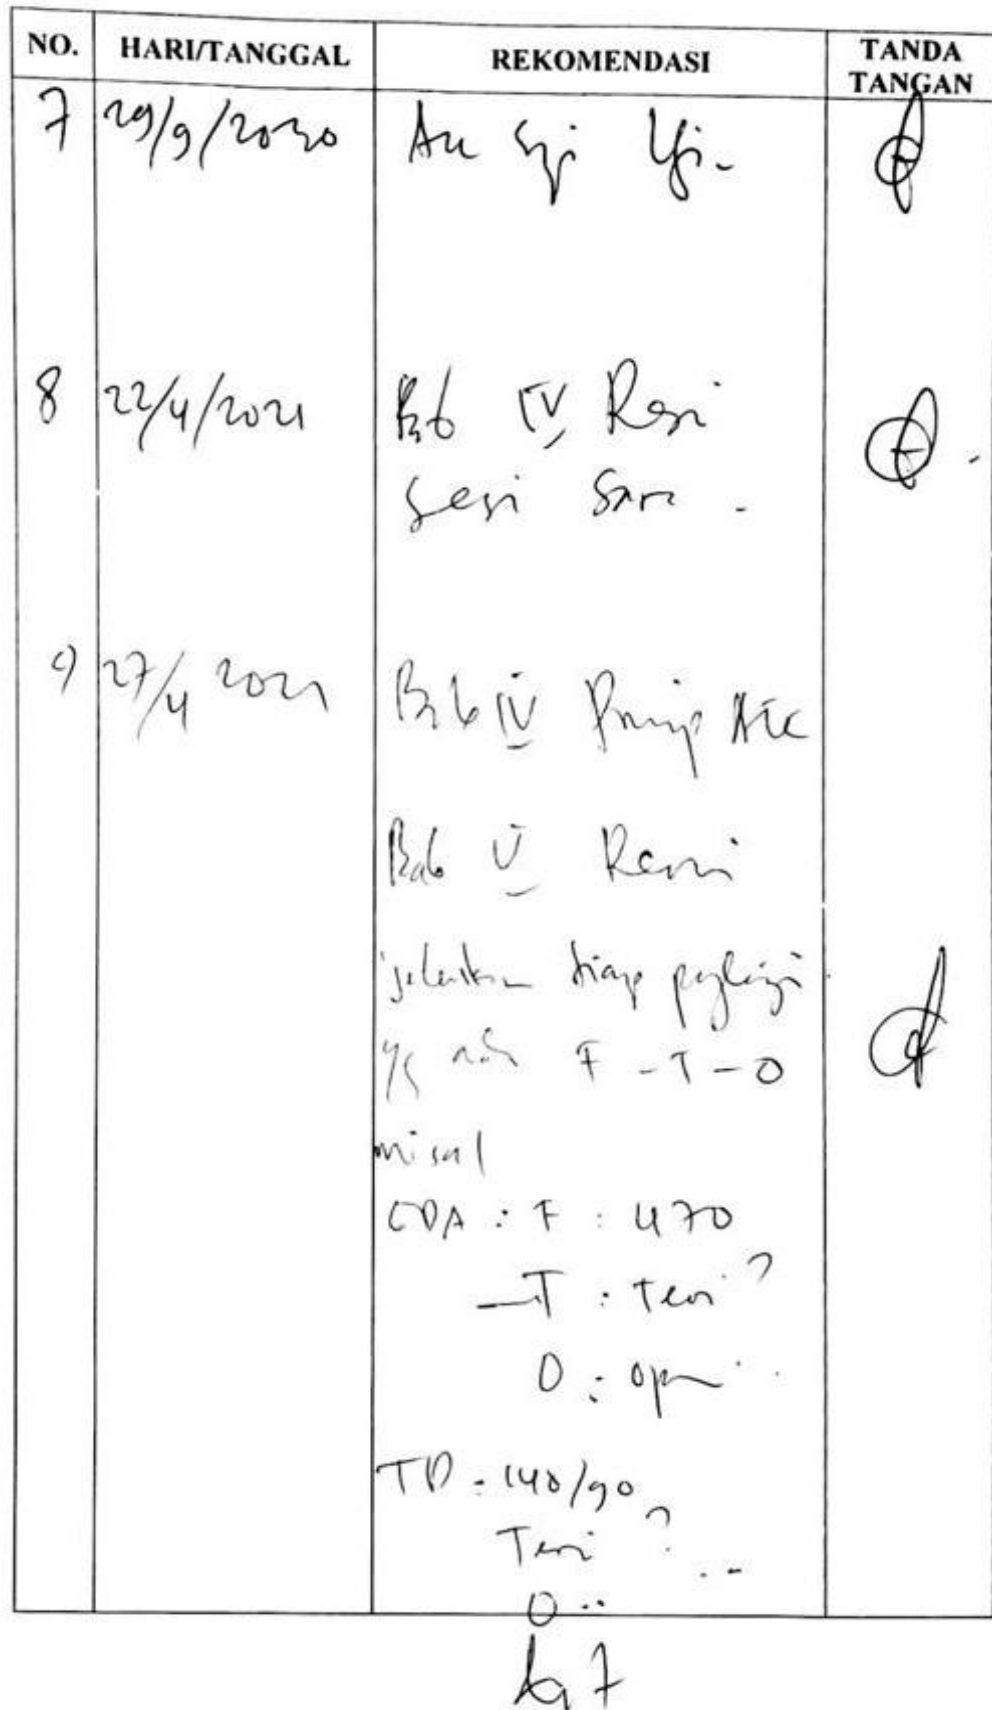 NO. HARI/TANGGAL REKOMENDASI TANDA TANGAN
7 29/9/2020 Acc Uji
8 22/4/2021 Bab IV Revisi
Sesuai Saran
9 27/4 2021 Bab IV Prinsip ACC
Bab V Revisi
jelaskan tiap
yg ada F - T - O
misal
GDA : F : 470
T : Teori ?
O : opini
TD : 140/90
Teori ?
O